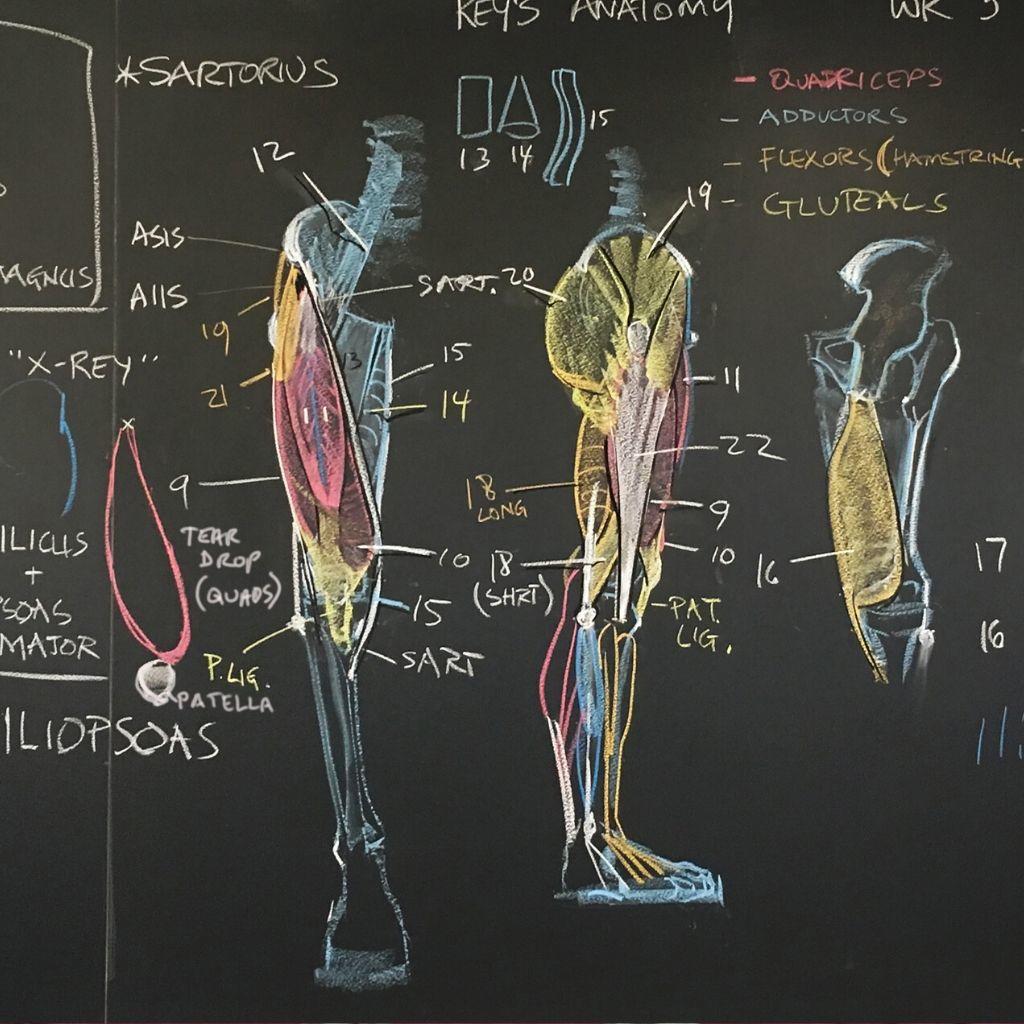 KEY'S ANATOMY
*SARTORIUS
- QUADRICEPS
- ADDUCTORS
- FLEXORS (HAMSTRING
- GLUTEALS
12
13
14
15
19
ASIS
AIIS
SART.
20
MAGNUS
19
21
13
15
14
11
"X-REY"
11
22
9
18
LONG
9
TEAR
DROP
(QUADS)
10
18
(SHRT)
10
16
17
ILICUS
+
PSOAS
MAJOR
15
PAT.
LIG.
16
SART
P. LIG.
PATELLA
ILIOPSOAS